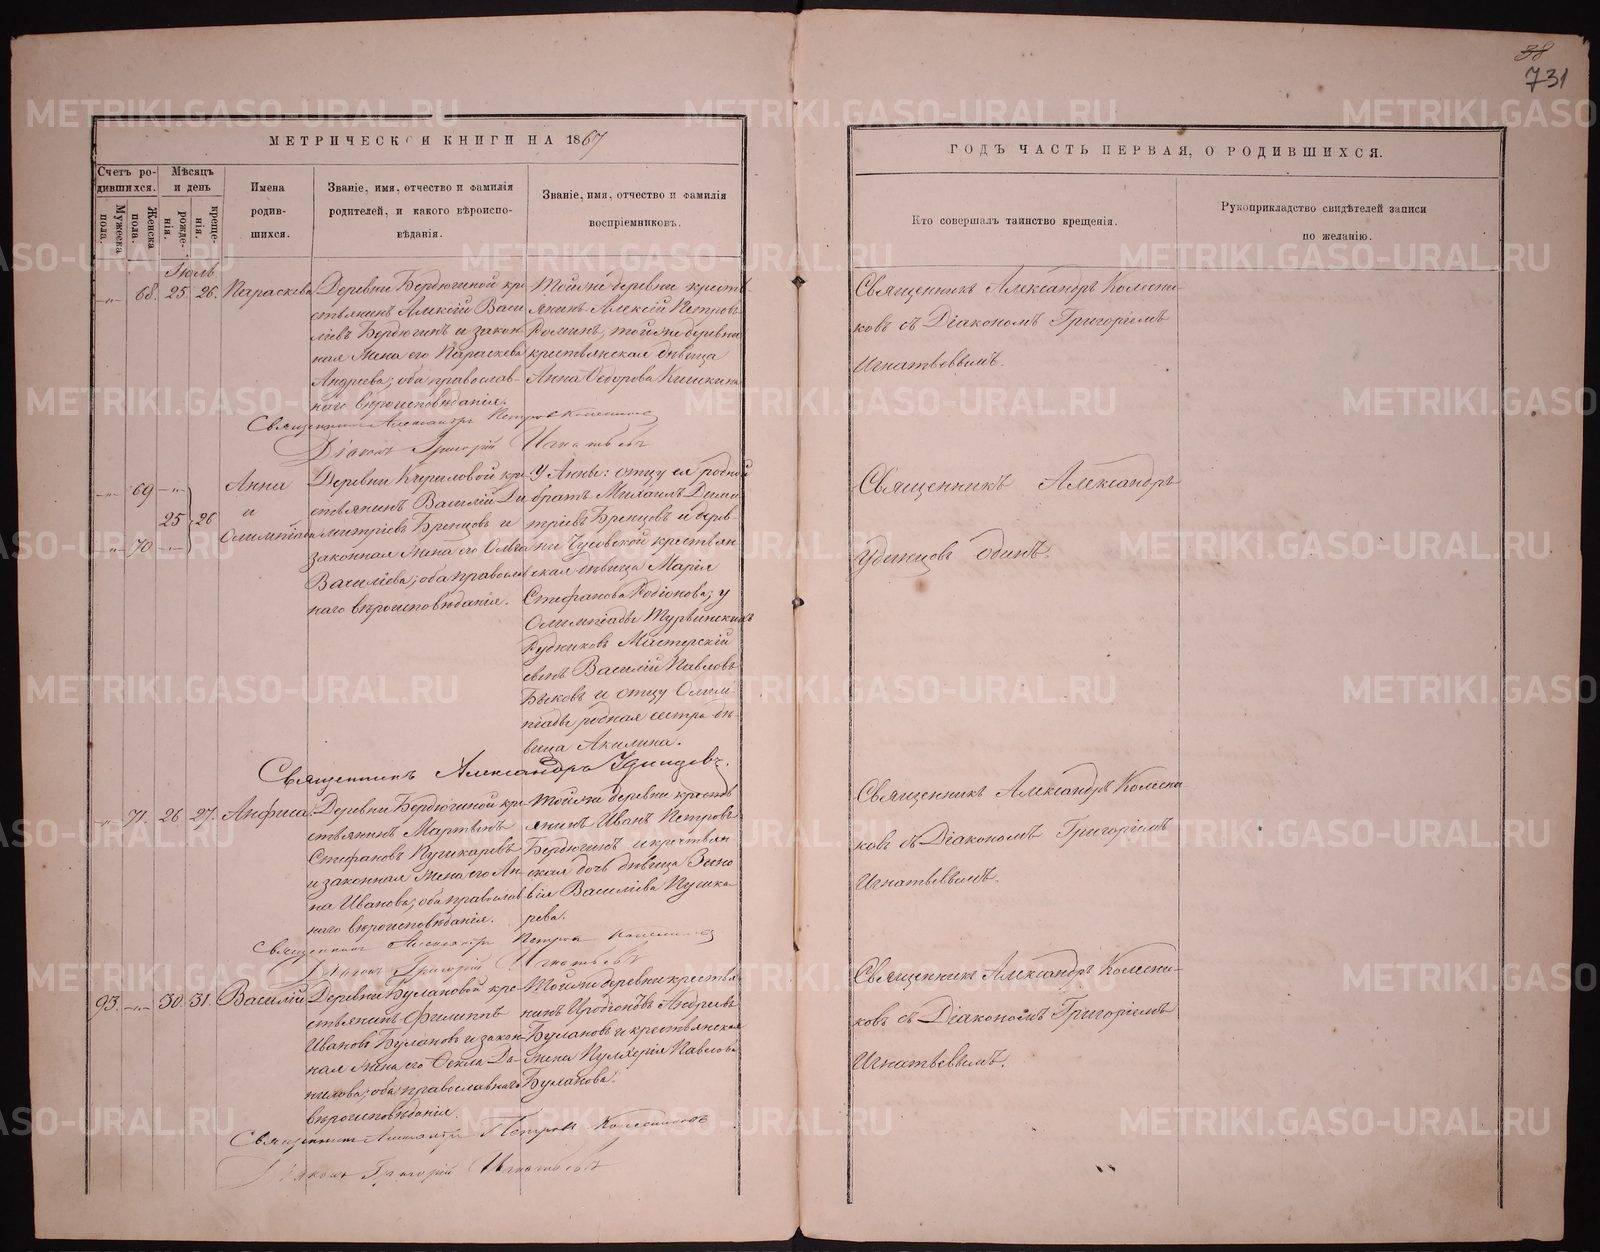 38
731
МЕТРИЧЕСК И КНИГИ НА 1867
ГОДЪ ЧАСТЬ ПЕРВАЯ, О РОДИВШИХСЯ.
Счетъ ро-
дившихся.
Мужеска
пола.
Женска
пола.
Мѣсяцъ
и день
рожде-
нія.
креще-
нія.
Имена
родив-
шихся.
Званіе, имя, отчество и фамилія
родителей, и какого вѣроиспо-
вѣданія.
Званіе, имя, отчество и фамилія
воспріемниковъ.
Кто совершалъ таинство крещенія.
Рукоприкладство свидѣтелей записи
по желанію.
Іюль
68. 25. 26. Параскева
Деревни Бердюгиной кре
стьянинъ Алексій Васи
ліевъ Бердюгинъ и закон
ная жена его Параскева
Андреева; оба православ-
наго вѣроисповѣданія.
Тойже деревни кресть
янинъ Алексій Петровъ
тойже деревни
крестьянская дѣвица
Анна Ѳедорова Кишкина
Священникъ Александръ Колесни-
ковъ съ Діакономъ Григоріемъ
Игнатьевымъ.
Священникъ Александръ Петровъ Колесниковъ
Діаконъ Григорій Игнатьевъ
69
70
25 26
Анна
и
Олимпіада
Деревни Кириловой кре
стьянинъ Василій Ди
митріевъ Бренцовъ и
законная жена его Ольга
Василіева; оба православ
наго вѣроисповѣданія.
У Анны: отцу ея родной
братъ Михаилъ Дими
тріевъ Бренцовъ и дерев-
ни Чусовской крестьян
ская дѣвица Марія
Стефанова Родіонова; у
Олимпіады
Рудниковъ Мастерскій
сынъ Василій Павловъ
Быковъ и отцу Олим
піады родная сестра дѣ-
вица Акилина.
Священникъ Александръ
Удинцовъ одинъ.
Священникъ Александръ Удинцовъ.
71. 26 27. Анфиса
Деревни Бердюгиной кре
стьянинъ Мартинъ
Стефановъ Пушкаревъ
и законная жена его Ан-
на Иванова; оба православ
наго вѣроисповѣданія.
Тойже деревни кресть
янинъ Иванъ Петровъ
Бердюгинъ и крестьян
ская дочь дѣвица Зино
вія Василіева Пушка-
рева.
Священникъ Александръ Колесни
ковъ съ Діакономъ Григоріемъ
Игнатьевымъ.
Священникъ Александръ Петровъ Колесниковъ
Діаконъ Григорій Игнатьевъ
93. 30. 31. Василій
Деревни Булановой кре
стьянинъ Филиппъ
Ивановъ Булановъ и закон
ная жена его Ѳекла Да-
нилова; оба православнаго
вѣроисповѣданія.
Тойже деревни крестья
нинъ Иродіонъ Андреевъ
Булановъ и крестьянская
жена Пулхерія Павлова
Буланова.
Священникъ Александръ Колесни-
ковъ съ Діакономъ Григоріемъ
Игнатьевымъ.
Священникъ Александръ Петровъ Колесниковъ
Діаконъ Григорій Игнатьевъ
METRIKI.GASO-URAL.RU